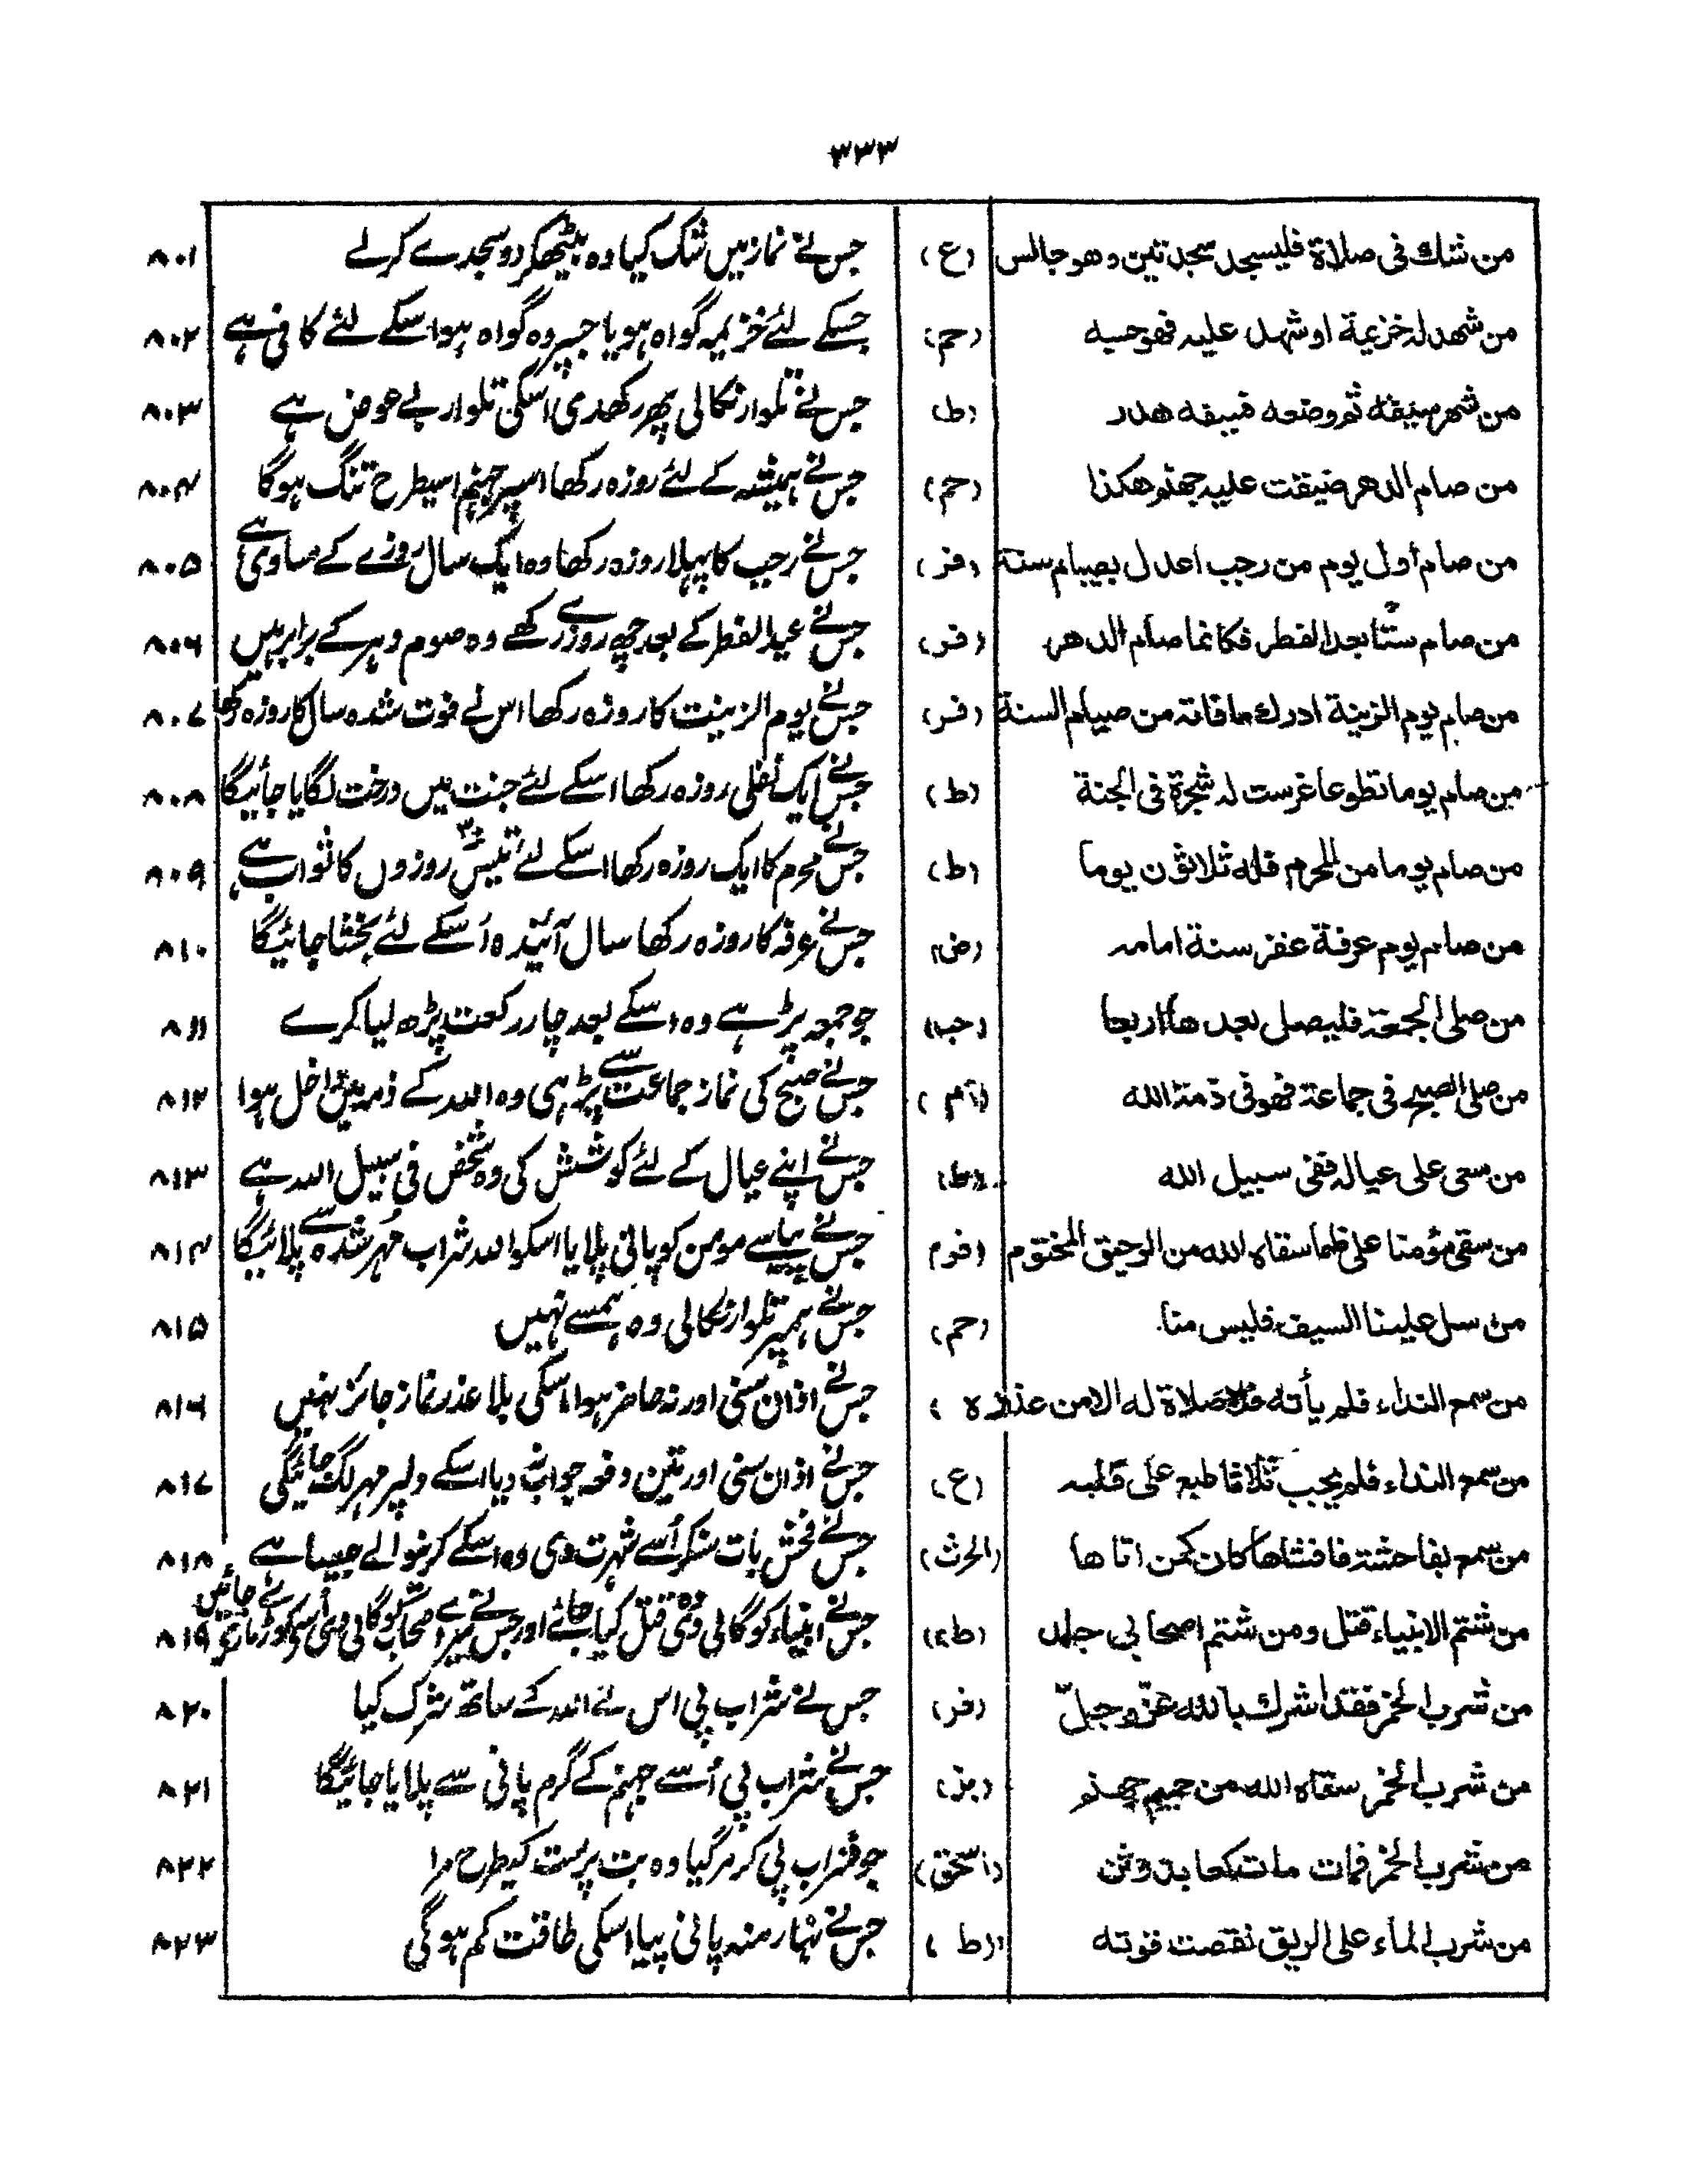 ۳۳۳
من شك فى صلاة فليسجد سجدتين وهو جالس (ع) جس نے نماز میں شک کیا وہ بیٹھکر دو سجدے کرلے ۸۰۱
من شهد له خزيمة او شهد عليه فهو حسبه (حم) جسکے لئے خزیمہ گواہ ہو یا جسپر وہ گواہ ہو اسکے لئے کافی ہے ۸۰۲
من شهر سيفه ثم وضعه فسيفه هدر (ط) جس نے تلوار نکالی پھر رکھدی اسکی تلوار بے عوض ہے ۸۰۳
من صام الدهر ضيقت عليه جهنم هكذا (حم) جس نے ہمیشہ کے لئے روزہ رکھا اسپر جہنم اسیطرح تنگ ہوگا ۸۰۴
من صام أول يوم من رجب اعدل بصيام سنة (فر) جس نے رجب کا پہلا روزہ رکھا وہ ایک سال روزے کے مساوی ہے ۸۰۵
من صام ستا بعد الفطر فكانما صام الدهر (فر) جس نے عید الفطر کے بعد چھ روزے رکھے وہ صوم دہر کے برابر ہیں ۸۰۶
من صام يوم الزينة ادرك ما فاته من صيام السنة (فر) جس نے یوم الزینت کا روزہ رکھا اس نے فوت شدہ سال کا روزہ رکھا ۸۰۷
من صام يوما تطوعا غرست له شجرة فى الجنة (ط) جس نے ایک نفلی روزہ رکھا اسکے لئے جنت میں درخت لگایا جائیگا ۸۰۸
من صام يوما من المحرم فله ثلاثون يوما (ط) جس نے محرم کا ایک روزہ رکھا اسکے لئے تیس ۳۰ روزوں کا ثواب ہے ۸۰۹
من صام يوم عرفة غفر سنة امامه (ض) جس نے عرفہ کا روزہ رکھا سال آئیندہ اُسکے لئے بخشا جائیگا ۸۱۰
من صلى الجمعة فليصل بعدها اربعا (حب) جو جمعہ پڑہے وہ اسکے بعد چار رکعت پڑھ لیا کرے ۸۱۱
من صلى الصبح فى جماعة فهو فى ذمة الله جس نے صبح کی نماز جماعت سے پڑہی وہ اللہ کے ذمہ میں داخل ہوا ۸۱۲
من سعى على عياله ففى سبيل الله (ط) جس نے اپنے عیال کے لئے کوشش کی وہ شخص فی سبیل اللہ ہے ۸۱۳
من سقى مؤمنا على ظما سقاه الله من الرحيق المختوم جس نے پیاسے مومن کو پانی پلایا اسکو اللہ شراب مُہر شدہ سے پلائیگا ۸۱۴
من سل علينا السيف فليس منا. (حم) جس نے ہمپر تلوار نکالی وہ ہمسے نہیں ۸۱۵
من سمع النداء فلم يأته فلا صلاة له الا من عذر جس نے اذان سنی اور نہ حاضر ہوا اسکی بلا عذر نماز جائز نہیں ۸۱۶
من سمع النداء فلم يجب ثلاثا طبع على قلبه (ع) جس نے اذان سنی اور تین دفعہ جواب نہ دیا اسکے دلپر مہر لگ جائیگی ۸۱۷
من سمع بفاحشة فافشاها كان كمن اتاها (الحرث) جس نے فحش بات سنکر اُسے شہرت دی وہ اسکے کرنیوالے جیسا ہے ۸۱۸
من شتم الانبياء قتل ومن شتم اصحابي جلد (ط) جس نے انبیاء کو گالی دی وہ قتل کیا جائے اور جس نے میرے اصحاب کو گالی دی اُسکو کوڑے مارے جائیں ۸۱۹
من شرب الخمر فقد اشرك بالله عزّ وجلّ (فر) جس نے شراب پی اس نے اللہ کے ساتھ شرک کیا ۸۲۰
من شرب الخمر سقاه الله من حميم جهنم (بز) جس نے شراب پی اُسے جہنم کے گرم پانی سے پلایا جائیگا ۸۲۱
من شرب الخمر فمات مات كعابد وثن (اسحق) جو شراب پی کر مرگیا وہ بت پرست کیطرح مرا ۸۲۲
من شرب الماء على الريق نقصت قوته (ط) جس نے نہار منہ پانی پیا اسکی طاقت کم ہوگی ۸۲۳